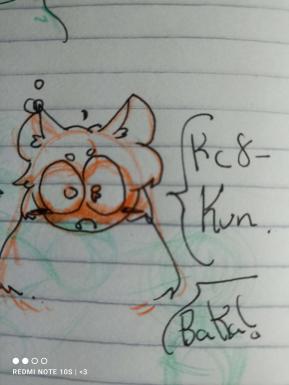 Kc8-
Kun.
Baka!
REDMI NOTE 10S | <3